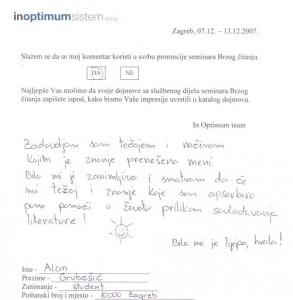 inoptimumsistem d.o.o.
Zagreb, 07.12. – 13.12.2007.
Slažem se da se moj komentar koristi u svrhu promocije seminara Brzog čitanja.
DA NE
Najljepše Vas molimo da svoje dojmove sa službenog dijela seminara Brzog
čitanja zapišete ispod, kako bismo Vaše impresije uvrstili u katalog dojmova.
In Optimum team
Zadovoljan sam tečajem i načinom
kojim je znanje prenešeno meni.
Bilo mi je zanimljivo i smatram da će
mi tečaj i znanje koje sam apsorbirao
puno pomoći u životu prilikom savladavanja
literature!
Bilo mi je lijepo, hvala!
Ime - Alan
Prezime - Grubešić
Zanimanje - student
Poštanski broj i mjesto - 10000 Zagreb